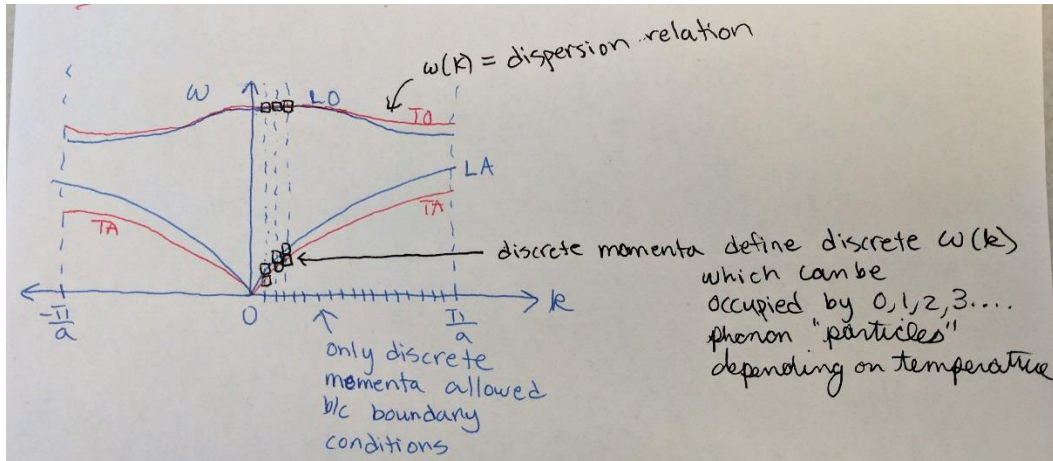 ω(k) = dispersion relation
ω
LO
TO
LA
TA
TA
discrete momenta define discrete ω(k)
which can be
occupied by 0,1,2,3....
phonon "particles"
depending on temperature
-π/a
0
π/a
k
only discrete
momenta allowed
b/c boundary
conditions